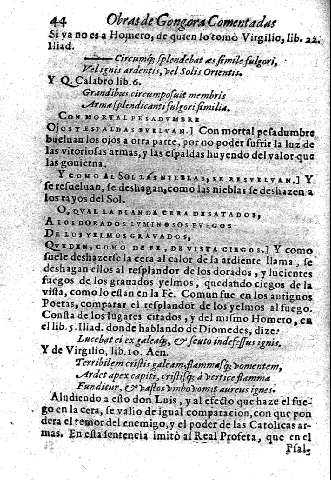 44 Obras de Gongora Comentadas
Si ya no es a Homero, de quien lo tomò Virgilio, lib. 22.
Iliad.
Circumq; splendebat æs simile fulgori,
Vel ignis ardentis, vel Solis Orientis.
Y Q. Calabro lib. 6.
Grandibus circumposuit membris
Arma splendicanti fulgori similia.
CON MORTAL PESADUMBRE
OJOS Y ESPALDAS BUELVAN.] Con mortal pesadumbre
bueluan los ojos a otra parte, por no poder sufrir la luz de
las vitoriosas armas, y las espaldas huyendo del valor que
las gouierna.
Y COMO AL SOL LAS NIEBLAS, SE RESVELVAN.] Y
se resueluan, se deshagan, como las nieblas se deshazen a
los rayos del Sol.
O, QVAL LA BLANDA CERA DESATADOS,
A LOS DORADOS LVMINOSOS FVEGOS
DE LOS YELMOS GRAVADOS,
QVEDEN, COMO DE FE, DE VISTA CIEGOS.] Y como
suele deshazerse la cera al calor de la ardiente llama, se
deshagan ellos al resplandor de los dorados, y lucientes
fuegos de los grauados yelmos, quedando ciegos de la
vista, como lo estan en la Fè. Comun fue en los antiguos
Poetas, comparar el resplandor de los yelmos al fuego.
Consta de los lugares citados, y del mismo Homero, en
el lib. 5. Iliad. donde hablando de Diomedes, dize:
Lucebat ei ex galeaq; & scuto indefessus ignis.
Y de Virgilio, lib. 10. Aen.
Terribilem cristis galeam, flammasq; vomentem,
Ardet apex capiti, cristisq; à vertice flamma
Funditur, & vastos vmbo vomit aureus ignes.
Aludiendo a esto don Luis, y al efecto que haze el fue-
go en la cera, se valio de igual comparacion, con que pon
dera el temor del enemigo, y el poder de las Catolicas ar-
mas. En esta sentencia imitò al Real Profeta, que en el
Psal.